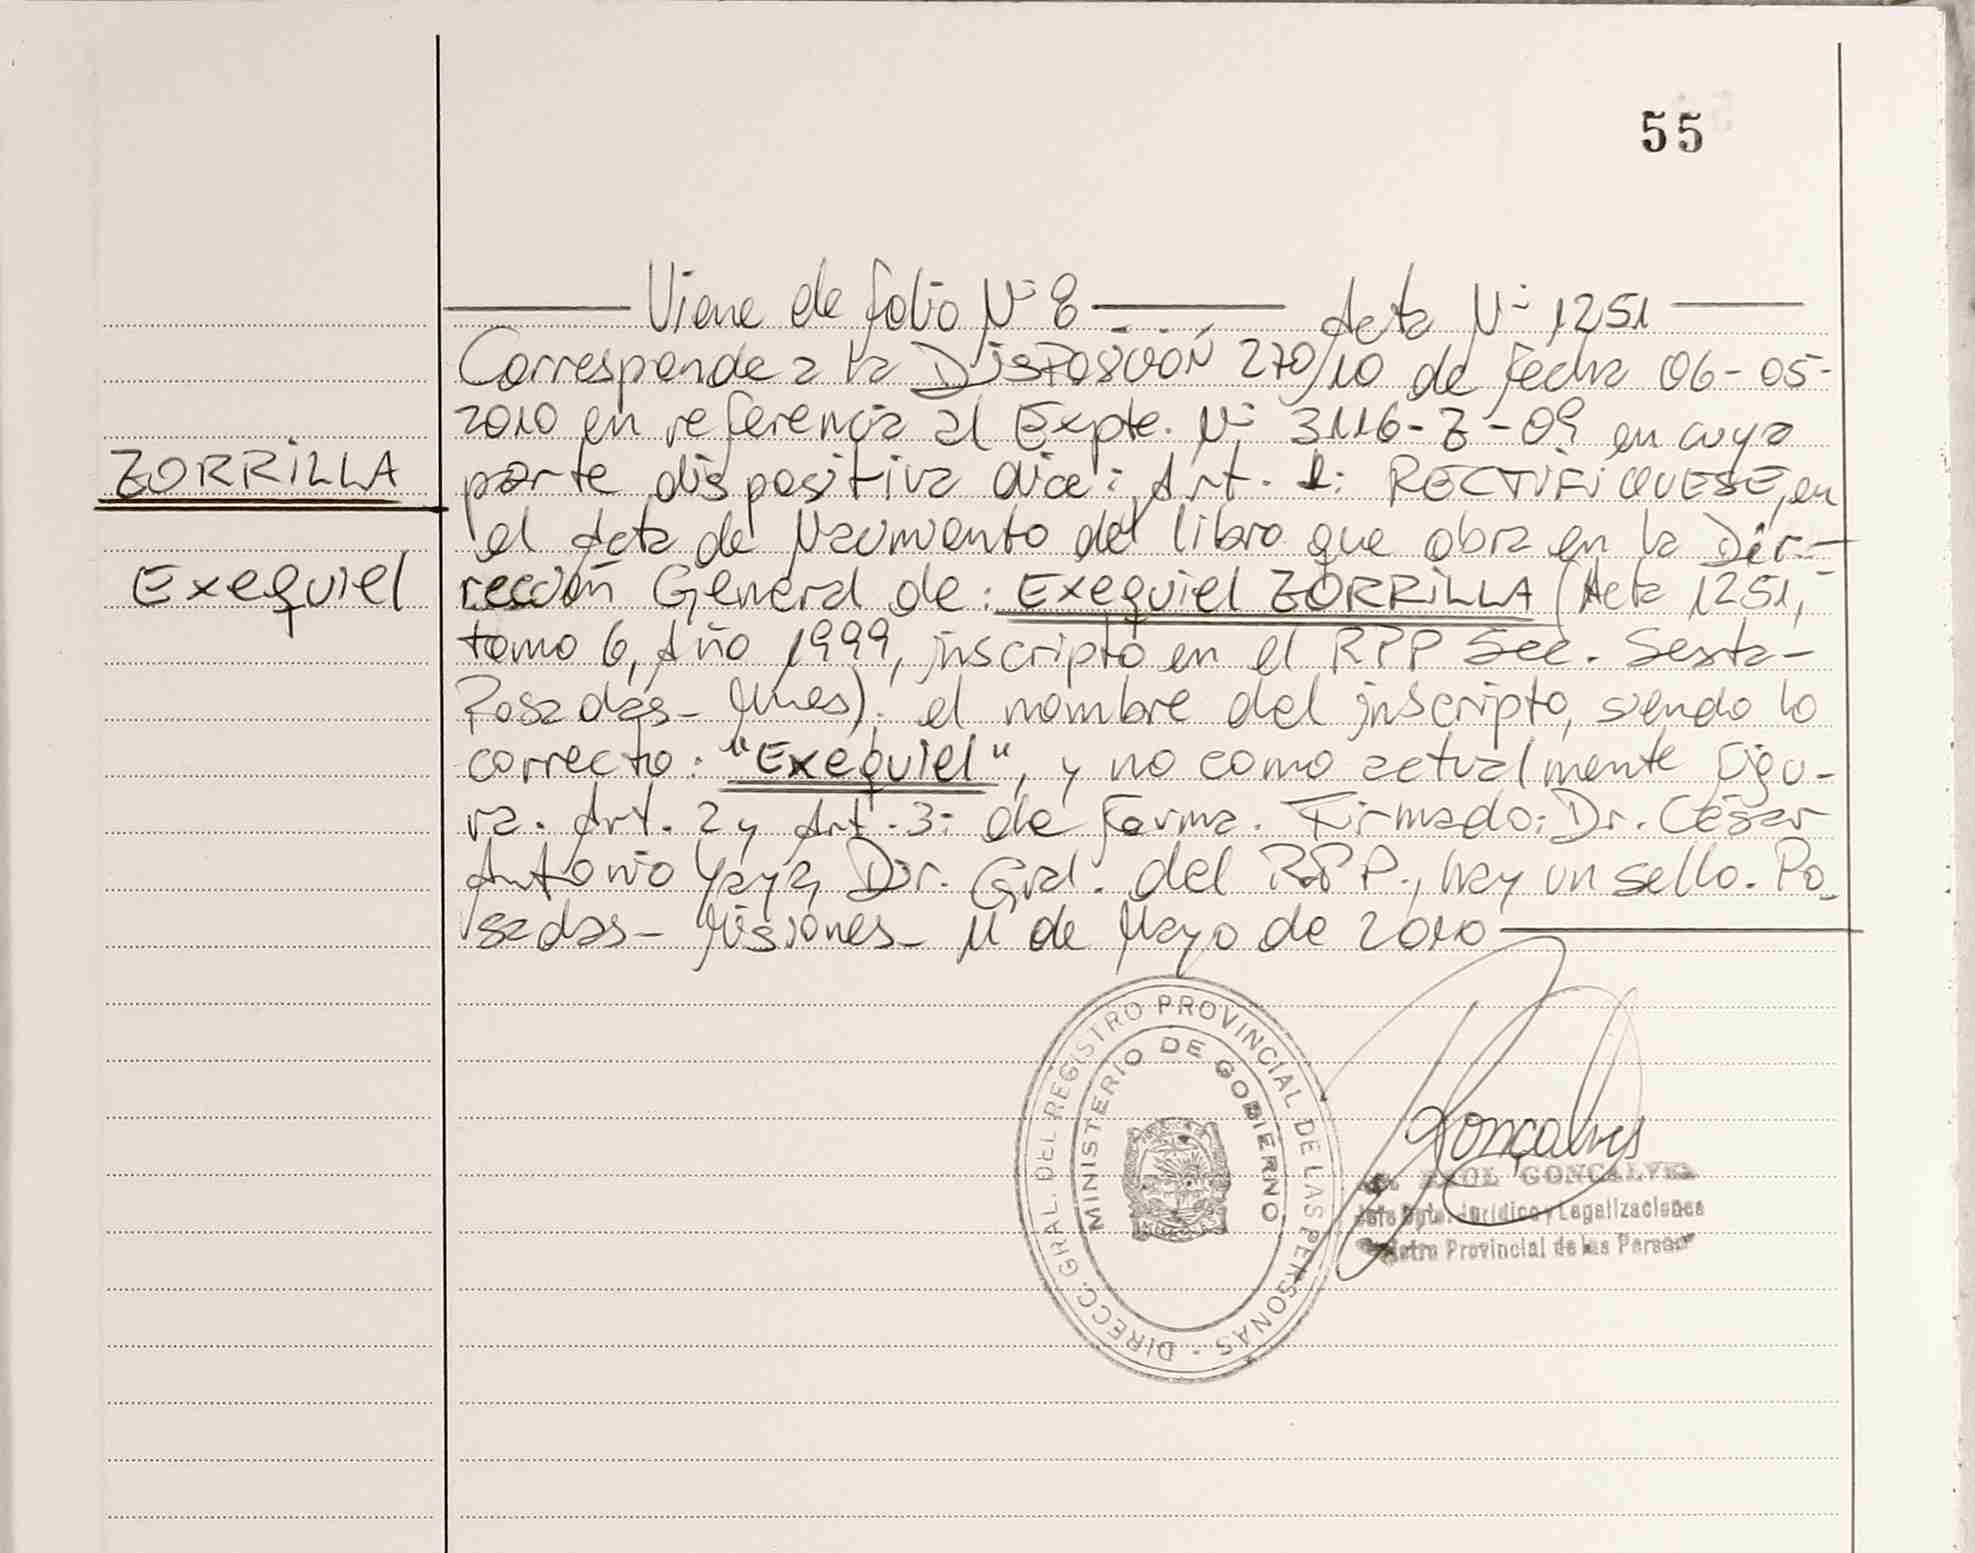 55
Viene de folio Nº 8 Acta Nº 1251
Corresponde a la DISPOSICIÓN 270/10 de fecha 06-05-
2010 en referencia al Expte. Nº 3116-Z-09 en cuya
ZORRiLLA
parte dispositiva dice: Art. 1: RECTIFiQUESE, en
el Acta de Nacimiento del libro que obra en la Dir-
Exequiel
rección General de: Exequiel ZORRiLLA (Acta 1251,
tomo 6, Año 1999, inscripto en el RPP Sec. Sexta-
Posadas- Mnes). el nombre del inscripto, siendo lo
correcto: "Exequiel", y no como actualmente figu-
ra. Art. 2 y Art. 3: de forma. Firmado: Dr. César
Antonio Yaya, Dir. Gral. del RPP., hay un sello. Po-
sadas- Misiones- 11 de Mayo de 2010
DIRECC. GRAL. DEL REGISTRO PROVINCIAL DE LAS PERSONAS -
MINISTERIO DE GOBIERNO
Gonçalves
RAUL GONCALVES
Jefe Dpto. Jurídico y Legalizaciones
Registro Provincial de las Personas